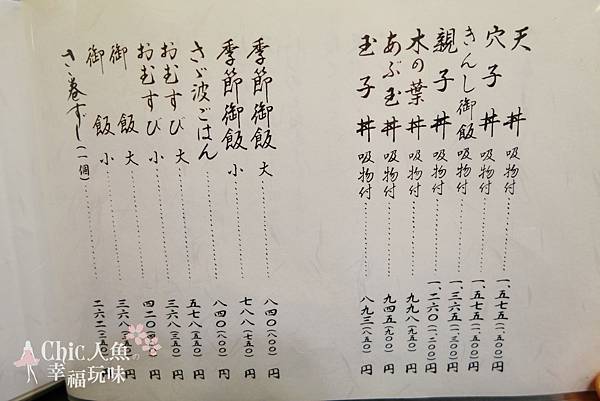 天丼 吸物付……一、五七五(一、五〇〇)円
穴子丼 吸物付……一、五七五(一、五〇〇)円
きんし御飯 吸物付……一、三六五(一、三〇〇)円
親子丼 吸物付……一、二六〇(一、二〇〇)円
木の葉丼 吸物付……九九八(九五〇)円
あぶ玉丼 吸物付……九四五(九〇〇)円
玉子丼 吸物付……八九三(八五〇)円
季節御飯 大……八四〇(八〇〇)円
季節御飯 小……七八八(七五〇)円
さゞ波ごはん……八四〇(八〇〇)円
おむすび 大……五七八(五五〇)円
おむすび 小……三六八(三五〇)円
御飯 大……四二〇(四〇〇)円
御飯 小……三六八(三五〇)円
さゝ巻ずし(一個)……二六二(二五〇)円
Chic人魚の
幸福玩味